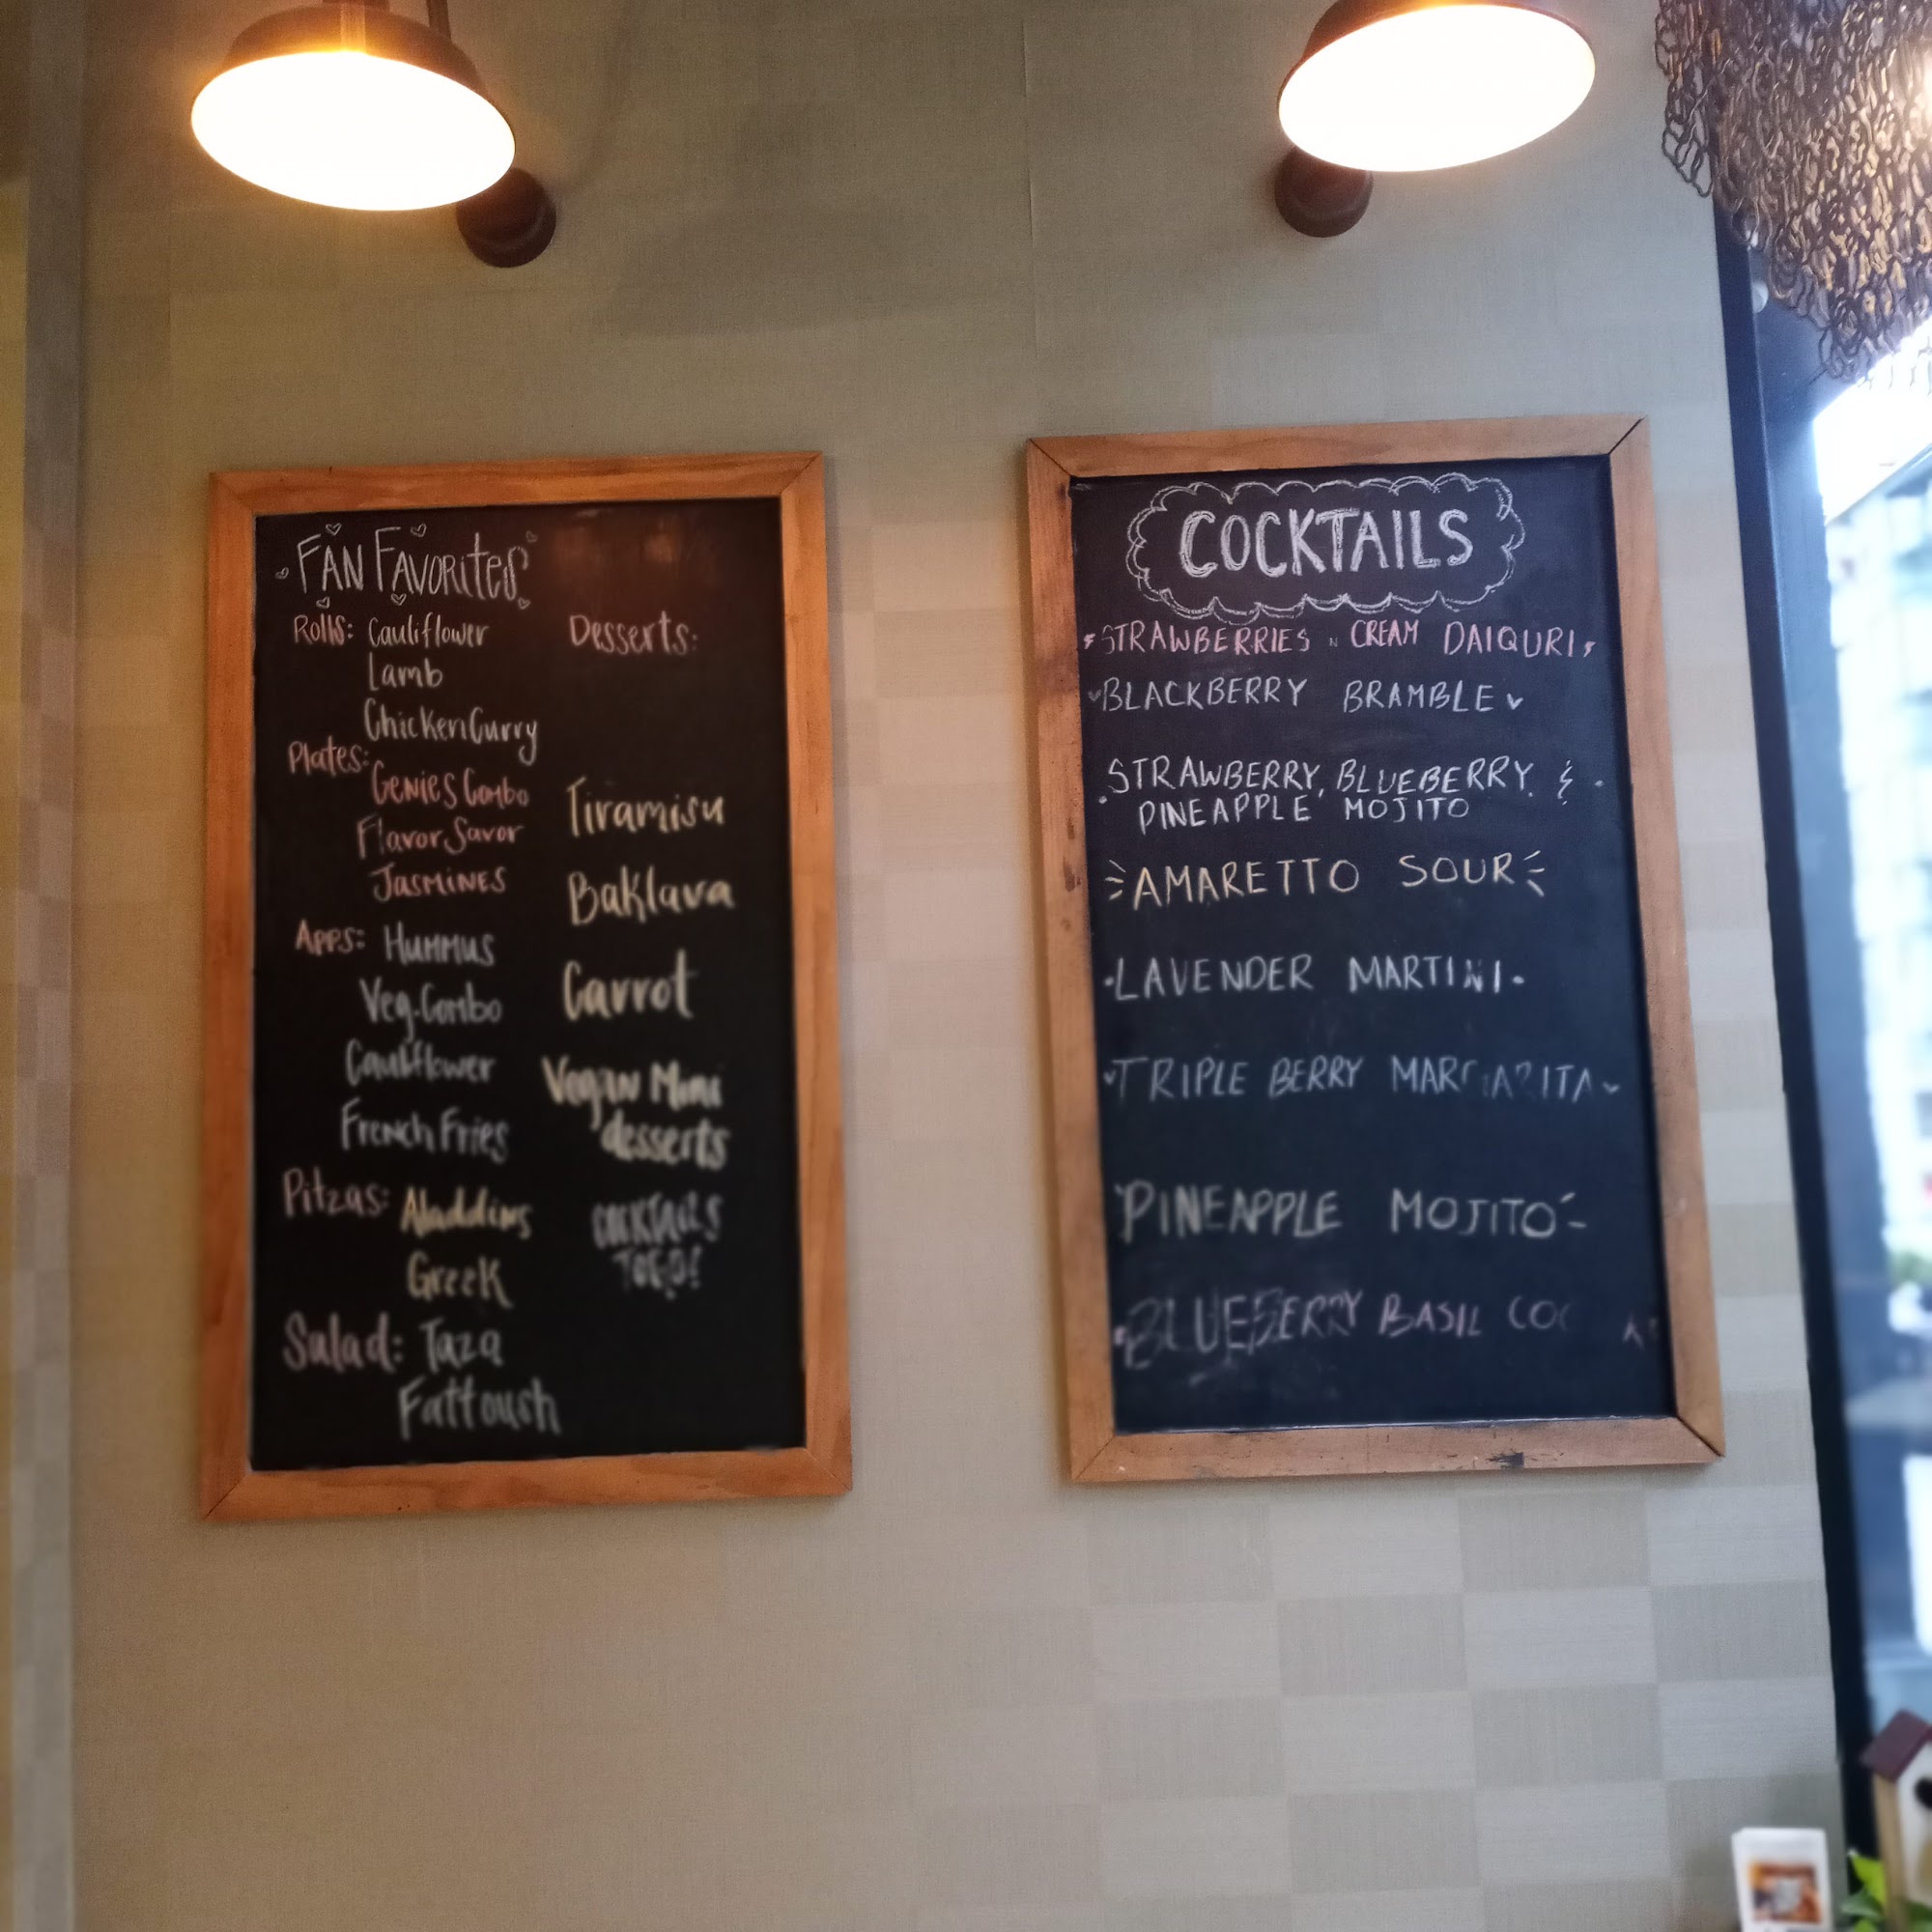 FAN FAVORITES
Rolls: Cauliflower
Lamb
Chicken Curry
Plates:
GENIES Combo
Flavor Savor
JASMINES
APPS: HUMMUS
Veg. Combo
Cauliflower
FRENCH FRIES
Pitzas: Aladdins
Greek
Salad: Taza
Fattoush
Desserts:
Tiramisu
Baklava
Carrot
Vegan Mini
desserts
COCKTAILS
TOGO!
COCKTAILS
STRAWBERRIES N CREAM DAIQURI
BLACKBERRY BRAMBLE
STRAWBERRY, BLUEBERRY, &
PINEAPPLE MOJITO
AMARETTO SOUR
LAVENDER MARTINI
TRIPLE BERRY MARGARITA
PINEAPPLE MOJITO
BLUEBERRY BASIL